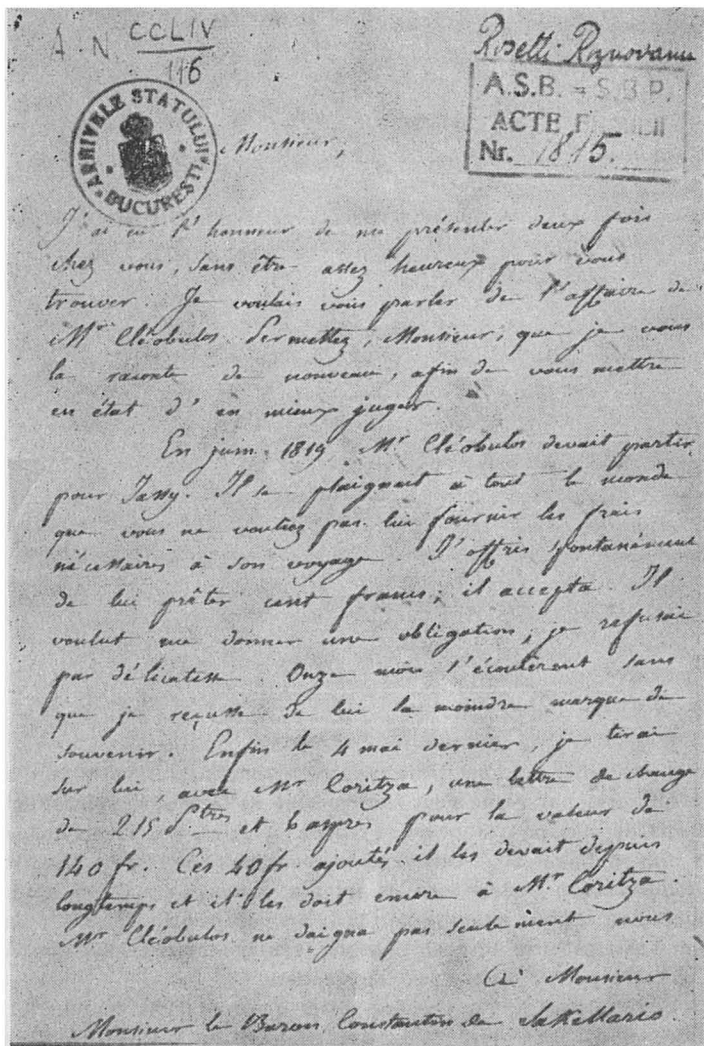 A. N. CCLIV
116
Rosetti Roznovanu
A.S.B. = S.B.P.
ACTE F
Nr. 1815.
ARHIVELE STATULUI
BUCUREȘTI
Monsieur,
J'ai eu l'honneur de me présenter deux fois
chez vous, sans être assez heureux pour vous
trouver. Je voulais vous parler de l'affaire de
Mr Cléobulos. Permettez, Monsieur, que je vous
la raconte de nouveau, afin de vous mettre
en état d'en mieux juger.
En juin 1819 Mr Cléobulos devait partir
pour Jassy. Il se plaignait à tout le monde
que vous ne vouliez pas lui fournir les frais
nécessaires à son voyage. J'offris spontanément
de lui prêter cent francs; il accepta. Il
voulut me donner une obligation, je refusai
par délicatesse. Onze mois s'écoulèrent sans
que je reçusse de lui la moindre marque de
souvenir. Enfin le 4 mai dernier, je tirai
sur lui, avec Mr Coritza, une lettre de change
de 215 et 6 aspres pour la valeur de
140 fr. Ces 40 fr. ajoutés il les devait depuis
longtemps et il les doit encore à Mr. Coritza.
Mr Cléobulos ne daigna pas seulement nous
A Monsieur
Monsieur le Baron Constantin de Sakellario.